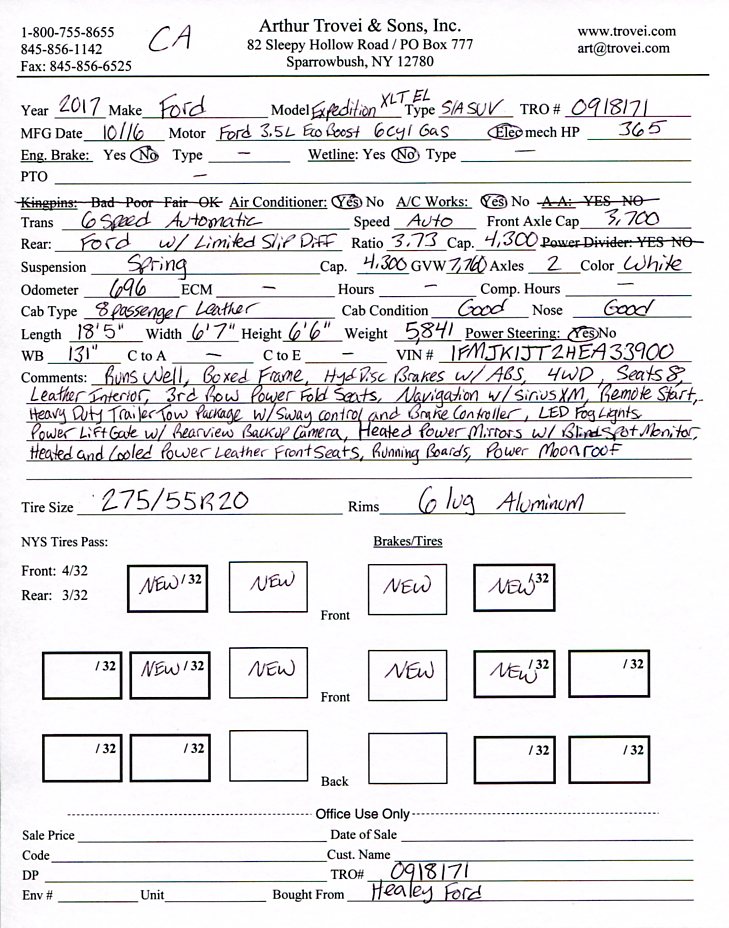 1-800-755-8655
845-856-1142
Fax: 845-856-6525
CA
Arthur Trovei & Sons, Inc.
82 Sleepy Hollow Road / PO Box 777
Sparrowbush, NY 12780
www.trovei.com
art@trovei.com
Year 2017 Make Ford Model Expedition XLT EL Type S/A SUV TRO # 0918171
MFG Date 10/16 Motor Ford 3.5L EcoBoost 6Cyl Gas Elec mech HP 365
Eng. Brake: Yes No Type — Wetline: Yes No Type —
PTO —
Kingpins: Bad Poor Fair OK Air Conditioner: Yes No A/C Works: Yes No A-A: YES NO
Trans 6 Speed Automatic Speed Auto Front Axle Cap 3,700
Rear: Ford w/ Limited Slip Diff Ratio 3.73 Cap. 4,300 Power Divider: YES NO
Suspension Spring Cap. 4,300 GVW 7,760 Axles 2 Color White
Odometer 696 ECM — Hours — Comp. Hours —
Cab Type 8 passenger Leather Cab Condition Good Nose Good
Length 18'5" Width 6'7" Height 6'6" Weight 5,841 Power Steering: Yes No
WB 131" C to A — C to E — VIN # 1FMJK1JT2HEA33900
Comments: Runs Well, Boxed Frame, Hyd Disc Brakes w/ ABS, 4WD, Seats 8,
Leather Interior, 3rd Row Power Fold Seats, Navigation w/ Sirius XM, Remote Start,
Heavy Duty Trailer Tow Package w/ Sway control and Brake Controller, LED Fog Lights,
Power Lift Gate w/ Rearview Backup Camera, Heated Power Mirrors w/ Blind Spot Monitor,
Heated and Cooled Power Leather Front Seats, Running Boards, Power Moonroof
Tire Size 275/55R20 Rims 6 lug Aluminum
NYS Tires Pass: Brakes/Tires
Front: 4/32
Rear: 3/32
NEW /32 NEW Front NEW NEW /32
/32 NEW /32 NEW Front NEW NEW /32 /32
/32 /32 Back /32 /32
Office Use Only
Sale Price Date of Sale
Code Cust. Name
DP TRO# 0918171
Env # Unit Bought From Healey Ford